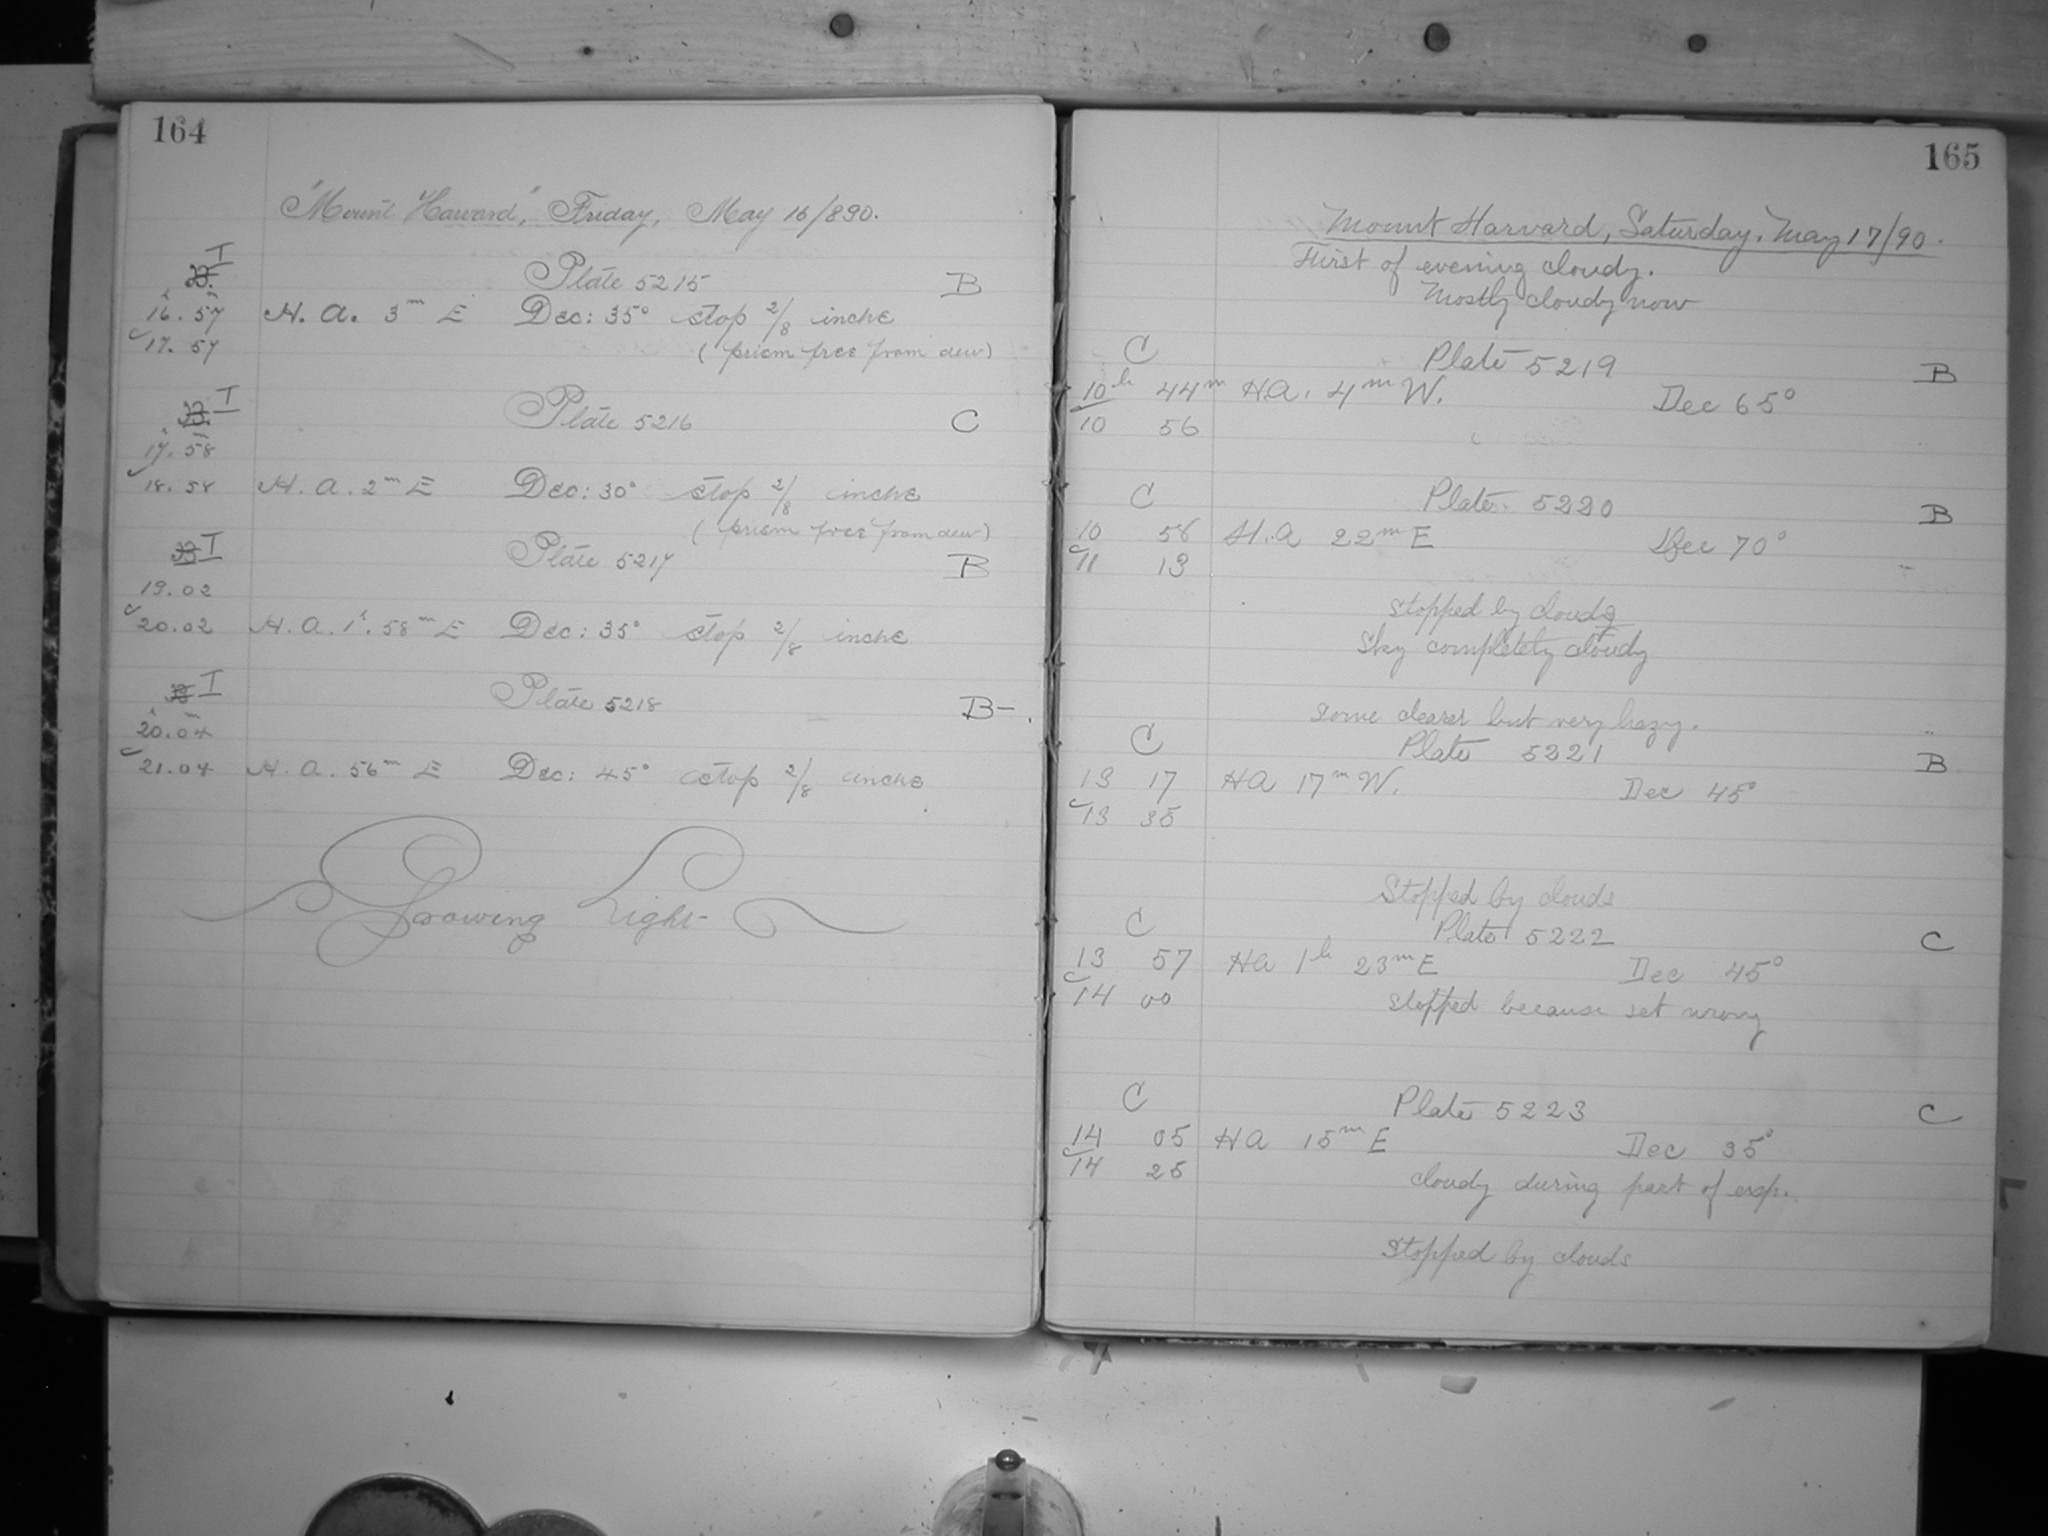 164
"Mount Harvard," Friday, May 16/890.
I
Plate 5215 B
16.57 H. A. 3m E Dec: 35° stop 2/8 inche
17.57 (prism free from dew)
I
Plate 5216 C
17.58
18.58 H. A. 2m E Dec: 30° stop 2/8 inche
(prism free from dew)
I
Plate 5217 B
19.02
20.02 H. A. 1h. 58m E Dec: 35° stop 2/8 inche
I
Plate 5218 B-.
20.04
21.04 H. A. 56m E Dec: 45° stop 2/8 inche
Growing Light
165
Mount Harvard, Saturday, May 17/90.
First of evening cloudy.
Mostly cloudy now
C Plate 5219 B
10h 44m HA. 4m W. Dec 65°
10 56
C Plate 5220 B
10 56 H.A 22m E Dec 70°
11 13
stopped by clouds
Sky completely cloudy
some clearer but very hazy.
C Plate 5221 B
13 17 HA 17m W. Dec 45°
13 35
Stopped by clouds
C Plate 5222 C
13 57 HA 1h 23m E Dec 45°
14 00 stopped because set wrong
C Plate 5223 C
14 05 HA 15m E Dec 35°
14 25 cloudy during part of exp.
Stopped by clouds